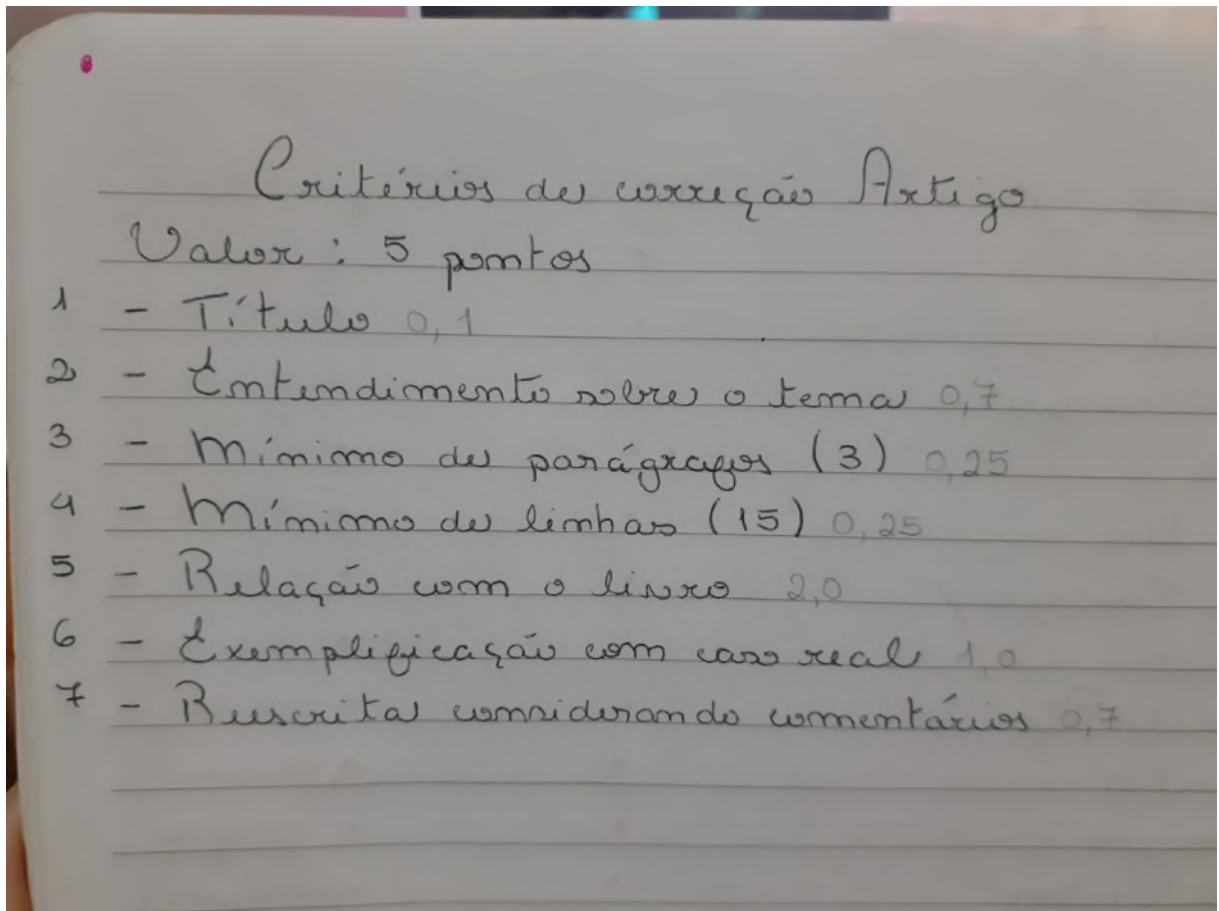 Critérios de correção Artigo
Valor : 5 pontos
1 - Título 0,1
2 - Entendimento sobre o tema 0,7
3 - Mínimo de parágrafos (3) 0,25
4 - Mínimo de linhas (15) 0,25
5 - Relação com o livro 2,0
6 - Exemplificação com caso real 1,0
7 - Reescrita considerando comentários 0,7